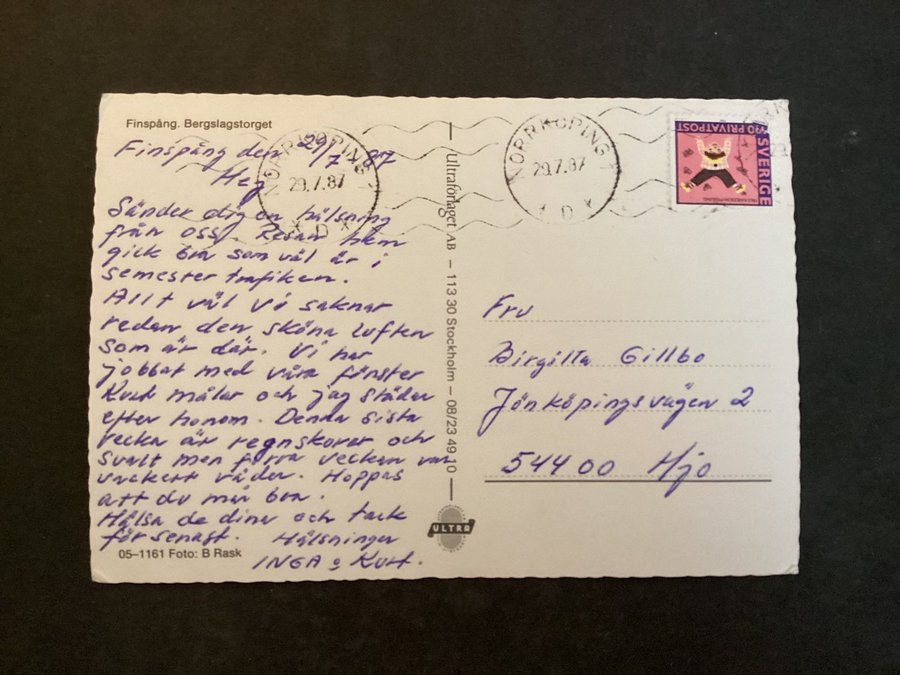 Finspång. Bergslagstorget
Finspång den 29/7 87
Hej
Sänder dig en hälsning
från oss. Resan hem
gick bra som väl är i
semester trafiken.
Allt väl Vi saknar
redan den sköna luften
som är där. Vi har
jobbat med våra fönster
Kurt målar och jag städar
efter honom. Denna sista
vecka är regnskurar och
svalt men förra veckan var
vackert väder. Hoppas
att du mår bra.
Hälsa de dina och tack
för senast. Hälsningar
INGA o Kurt.
05–1161 Foto: B Rask
Ultraförlaget AB – 113 30 Stockholm – 08/23 49 10
ULTRA
NORRKÖPING 1
29.7.87
X D X
NORRKÖPING 1
29.7.87
X D X
SVERIGE
90 PRIVATPOST
Fru
Birgitta Gillbo
Jönköpingsvägen 2
544 00 Hjo